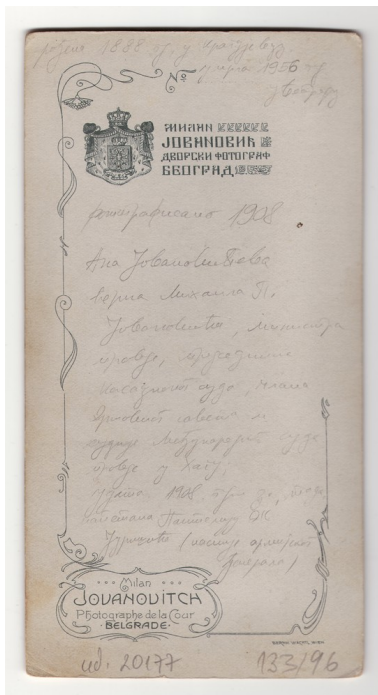 рођена 1888 г. у Крагујевцу
умрла 1956 г.
у Београду
№
МИЛАН
ЈОВАНОВИЋ
ДВОРСКИ ФОТОГРАФ
БЕОГРАД
фотографисано 1908
Ана Јовановићева
ћерка Михаила П.
Јовановића, министра
правде, председника
касационог суда, члана
државног савета и
судије међународног суда
правде у Хагу;
удата 1908
Јуришић
генерала)
Milan
JOVANOVITCH
Photographe de la Cour
BELGRADE
ud. 20177
133/96